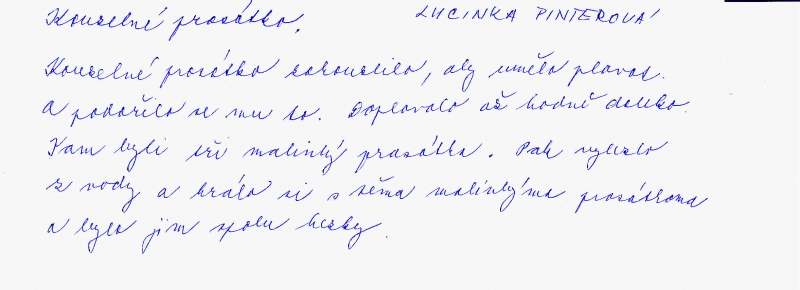 Kouzelné prasátko. LUCINKA PINTEROVÁ
Kouzelné prasátko zakouzlilo, aby umělo plavat.
A podařilo se mu to. Doplavalo až hodně daleko.
Tam byli tři malinký prasátka. Pak vylezlo
z vody a hrálo si s těma malinkýma prasátkama
a bylo jim spolu hezky.